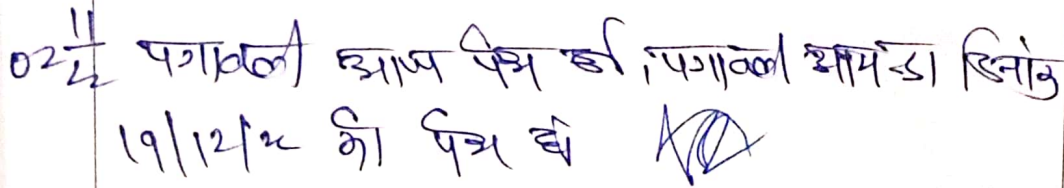 02/11/22 पत्रावली आज पेश हुई, पत्रावली आयंदा दिनांक
19/12/22 को पेश हो